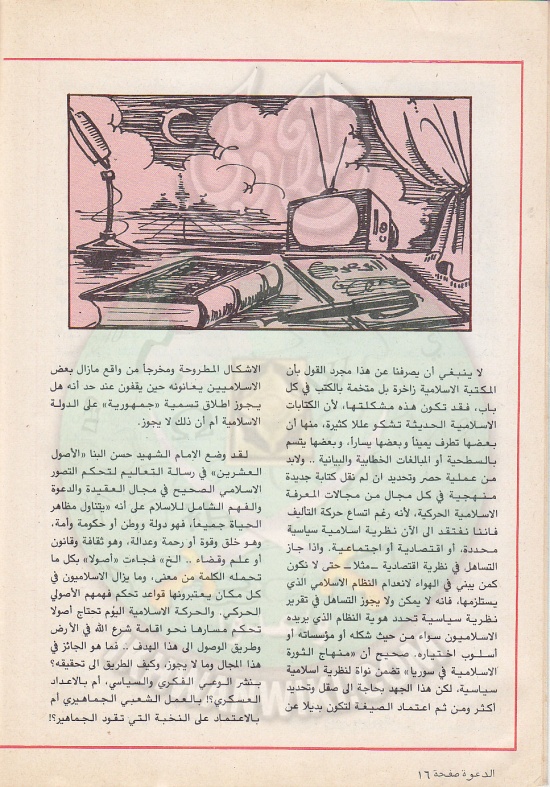 لا ينبغي أن يصرفنا عن هذا مجرد القول بأن
المكتبة الاسلامية زاخرة بل متخمة بالكتب في كل
باب، فقد تكون هذه مشكلتها، لأن الكتابات
الاسلامية الحديثة تشكو عللا كثيرة، منها أن
بعضها تطرف يميناً وبعضها يساراً، وبعضها يتسم
بالسطحية أو المبالغات الخطابية والبيانية .. ولابد
من عملية حصر وتحديد ان لم نقل كتابة جديدة
منهجية في كل مجال من مجالات المعرفة
الاسلامية الحركية، لأنه رغم اتساع حركة التأليف
فاننا نفتقد الى الآن نظرية اسلامية سياسية
محددة، أو اقتصادية أو اجتماعية. واذا جاز
التساهل في نظرية اقتصادية –مثلا– حتى لا نكون
كمن يبني في الهواء لانعدام النظام الاسلامي الذي
يستلزمها، فانه لا يمكن ولا يجوز التساهل في تقرير
نظرية سياسية تحدد هوية النظام الذي يريده
الاسلاميون سواء من حيث شكله أو مؤسساته أو
أسلوب اختياره. صحيح أن «منهاج الثورة
الاسلامية في سوريا» تضمن نواة لنظرية اسلامية
سياسية، لكن هذا الجهد بحاجة الى صقل وتحديد
أكثر ومن ثم اعتماد الصيغة لتكون بديلا عن
الاشكال المطروحة ومخرجاً من واقع مازال بعض
الاسلاميين يعانونه حين يقفون عند حد أنه هل
يجوز اطلاق تسمية «جمهورية» على الدولة
الاسلامية أم أن ذلك لا يجوز.
لقد وضع الامام الشهيد حسن البنا «الأصول
العشرين» في رسالة التعاليم لتحكم التصور
الاسلامي الصحيح في مجال العقيدة والدعوة
والفهم الشامل للاسلام على أنه «يتناول مظاهر
الحياة جميعاً، فهو دولة ووطن أو حكومة وأمة،
وهو خلق وقوة أو رحمة وعدالة، وهو ثقافة وقانون
أو علم وقضاء .. الخ» فجاءت «أصولا» بكل ما
تحمله الكلمة من معنى، وما يزال الاسلاميون في
كل مكان يعتبرونها قواعد تحكم فهمهم الأصولي
الحركي. والحركة الاسلامية اليوم تحتاج أصولا
تحكم مسارها نحو اقامة شرع الله في الأرض
وطريق الوصول الى هذا الهدف .. فما هو الجائز في
هذا المجال وما لا يجوز، وكيف الطريق الى تحقيقه؟
بنشر الوعي الفكري والسياسي، أم بالاعداد
العسكري؟! بالعمل الشعبي الجماهيري أم
بالاعتماد على النخبة التي تقود الجماهير؟!
الدعوة صفحة ١٦